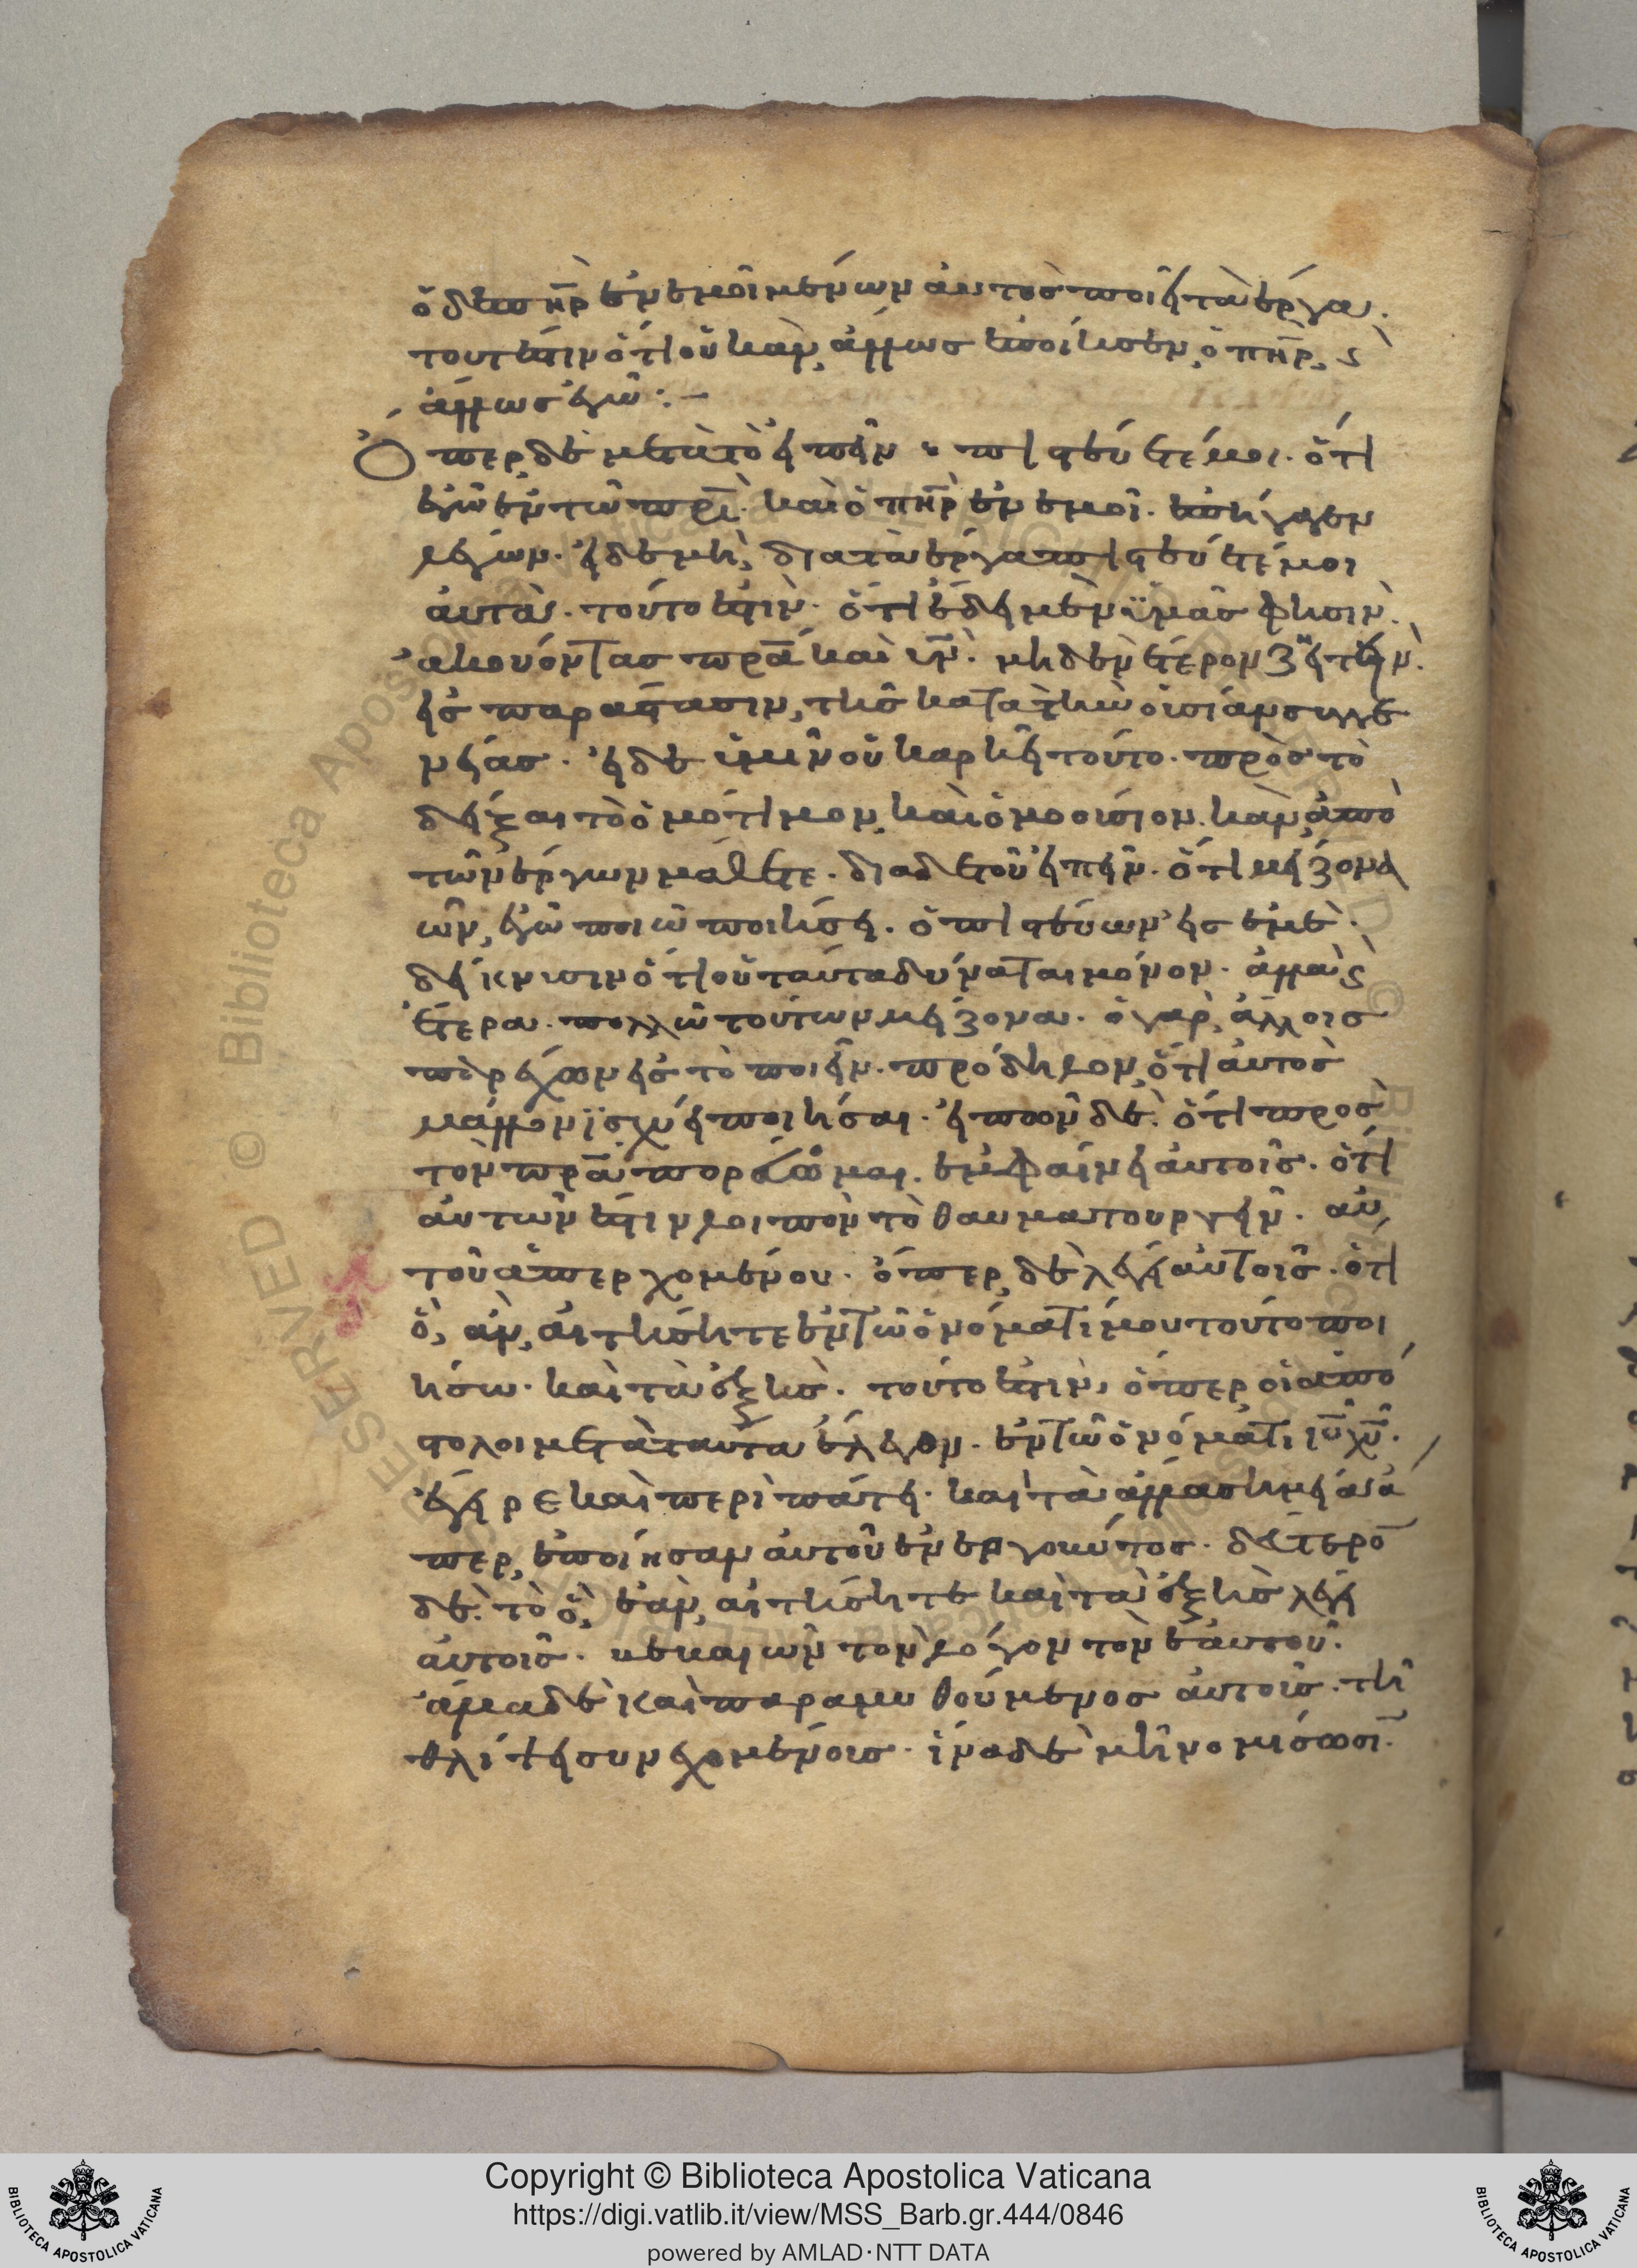 ὁ δὲ πη̅ρ ἐν ἐμοὶ μένων αὐτὸς ποιεῖ τὰ ἔργα.
τουτέστιν ὅτι οὐκ ἂν ἄλλως ἐποίησεν ὁ πη̅ρ, ϛ
ἄλλως ἐγώ :-
Ὅπερ δὲ μετὰ τὸ εἰπεῖν · πιστεύετέ μοι. ὅτι
ἐγὼ ἐν τῶ πρι̅. καὶ ὁ πη̅ρ ἐν ἐμοί. ἐπήγαγεν
λέγων. εἰ δὲ μὴ, διὰ τὰ ἔργα πιστεύετέ μοι
αὐτά. τοῦτο ἐστιν. ὅτι ἔδει μὲν ϋμᾶς φησιν.
ἀκούοντας πρα̅ καὶ υν̅. μηδὲν ἕτερον ζητεῖν.
εἰς παράστασιν, τῆς κατὰ τὴν οὐσίαν συγγε
νείας. εἰ δὲ ὑμῖν οὐκ ἀρκεῖ τοῦτο. πρὸς τὸ
δεῖξαι τὸ ὁμότιμον, καὶ ὁμοούσιον. κἂν ἀπὸ
τῶν ἔργων μάθετε. διὰ δὲ τοῦ εἰπεῖν. ὅτι μείζονα
ὧν, ἐγὼ ποιῶ ποιήσει. ὁ πιστεύων εἰς ἐμέ.
δείκνυσιν ὅτι οὐ ταῦτα δύναται μόνον. ἀλλὰ ϛ
ἕτερα. πολλῶ τούτων μείζονα. ὁ γὰρ, ἄλλοις
παρέχων εἰς τὸ ποιεῖν. πρόδηλον, ὅτι αὐτὸς
μᾶλλον ϊσχύει ποιῆσαι. εἰπὼν δὲ. ὅτι πρὸς
τὸν πρα̅ πορεύομαι. ἐμφαίνει αὐτοῖς. ὅτι
αὐτῶν ἐστιν λοιπὸν τὸ θαυματουργεῖν. αὐ
τοῦ ἀπερχομένου. ὅπερ δὲ λέγει αὐτοῖς. ὅτι
ὃ, ἂν, αἰτήσητε ἐν τῶ ὀνόματί μου τοῦτο ποι
ήσω. καὶ τὰ ἑξῆς. τοῦτο ἐστιν, ὅπερ οἱ ἀπό
στολοι μετὰ ταῦτα ἔλεγον. ἐν τῶ ὀνόματι ιυ̅ χυ̅.
ἔγειρε καὶ περιπάτει. καὶ τὰ ἄλλα σημεῖα ἅ
περ, ἐποίησαν αὐτοῦ ἐνεργοῦντος. δεύτερο̅
δὲ. τὸ ὃ, ἐὰν, αἰτήσητε καὶ τὰ ἑξῆς λέγει
αὐτοῖς. βεβαιῶν τὸν λόγον τὸν ἑαυτοῦ.
ἅμα δὲ καὶ παραμυθούμενος αὐτοὺς. τῆ
θλίψει συνεχομένοις. ἵνα δὲ μὴ νομίσωσι̅.
Copyright © Biblioteca Apostolica Vaticana
https://digi.vatlib.it/view/MSS_Barb.gr.444/0846
powered by AMLAD·NTT DATA
BIBLIOTECA APOSTOLICA VATICANA
BIBLIOTECA APOSTOLICA VATICANA